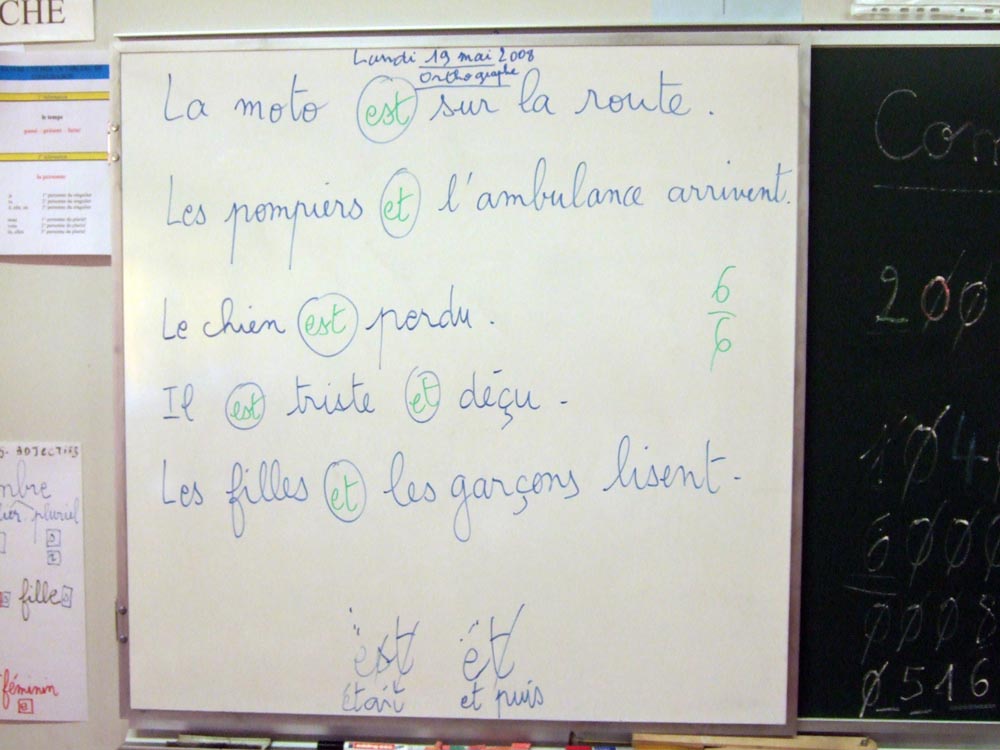 CHE
Lundi 19 mai 2008
Orthographe
La moto est sur la route.
Les pompiers et l'ambulance arrivent.
Le chien est perdu.
6
6
Il est triste et déçu.
Les filles et les garçons lisent.
est et
était et puis
le temps
passé - présent - futur
la personne
ADJECTIFS
pluriel
fille
féminin
e
Com
200
104
6000
0008
0516